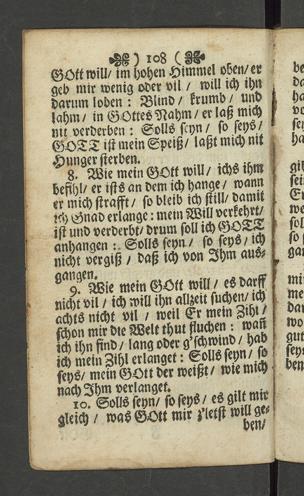 ) 108 (
GOtt will/ im hohen Himmel oben/ er
geb mir wenig oder vil / will ich ihn
darum loben : Blind/ krumb/ und
lahm/ in GOttes Nahm/ er laß mich
nit verderben : Solls seyn/ so seys/
GOTT ist mein Speiß/ laßt mich nit
Hunger sterben.
8. Wie mein GOtt will/ ichs ihm
befihl/ er ists an dem ich hange/ wann
er mich strafft/ so bleib ich still/ damit
ich Gnad erlange: mein Will verkehrt/
ist und verderbt/ drum soll ich GOTT
anhangen :. Solls seyn/ so seys/ ich
nicht vergiß/ daß ich von Ihm aus-
gangen.
9. Wie mein GOtt will/ es darff
nicht vil/ ich will ihn allzeit suchen/ ich
achts nicht vil/ weil Er mein Zihl/
schon mir die Welt thut fluchen : wañ
ich ihn find/ lang oder g'schwind/ hab
ich mein Zihl erlanget : Solls seyn/ so
seys/ mein GOtt der weißt/ wie mich
nach Ihm verlanget.
10. Solls seyn/ so seys/ es gilt mir
gleich/ was GOtt mir z'letst will ge-
ben/